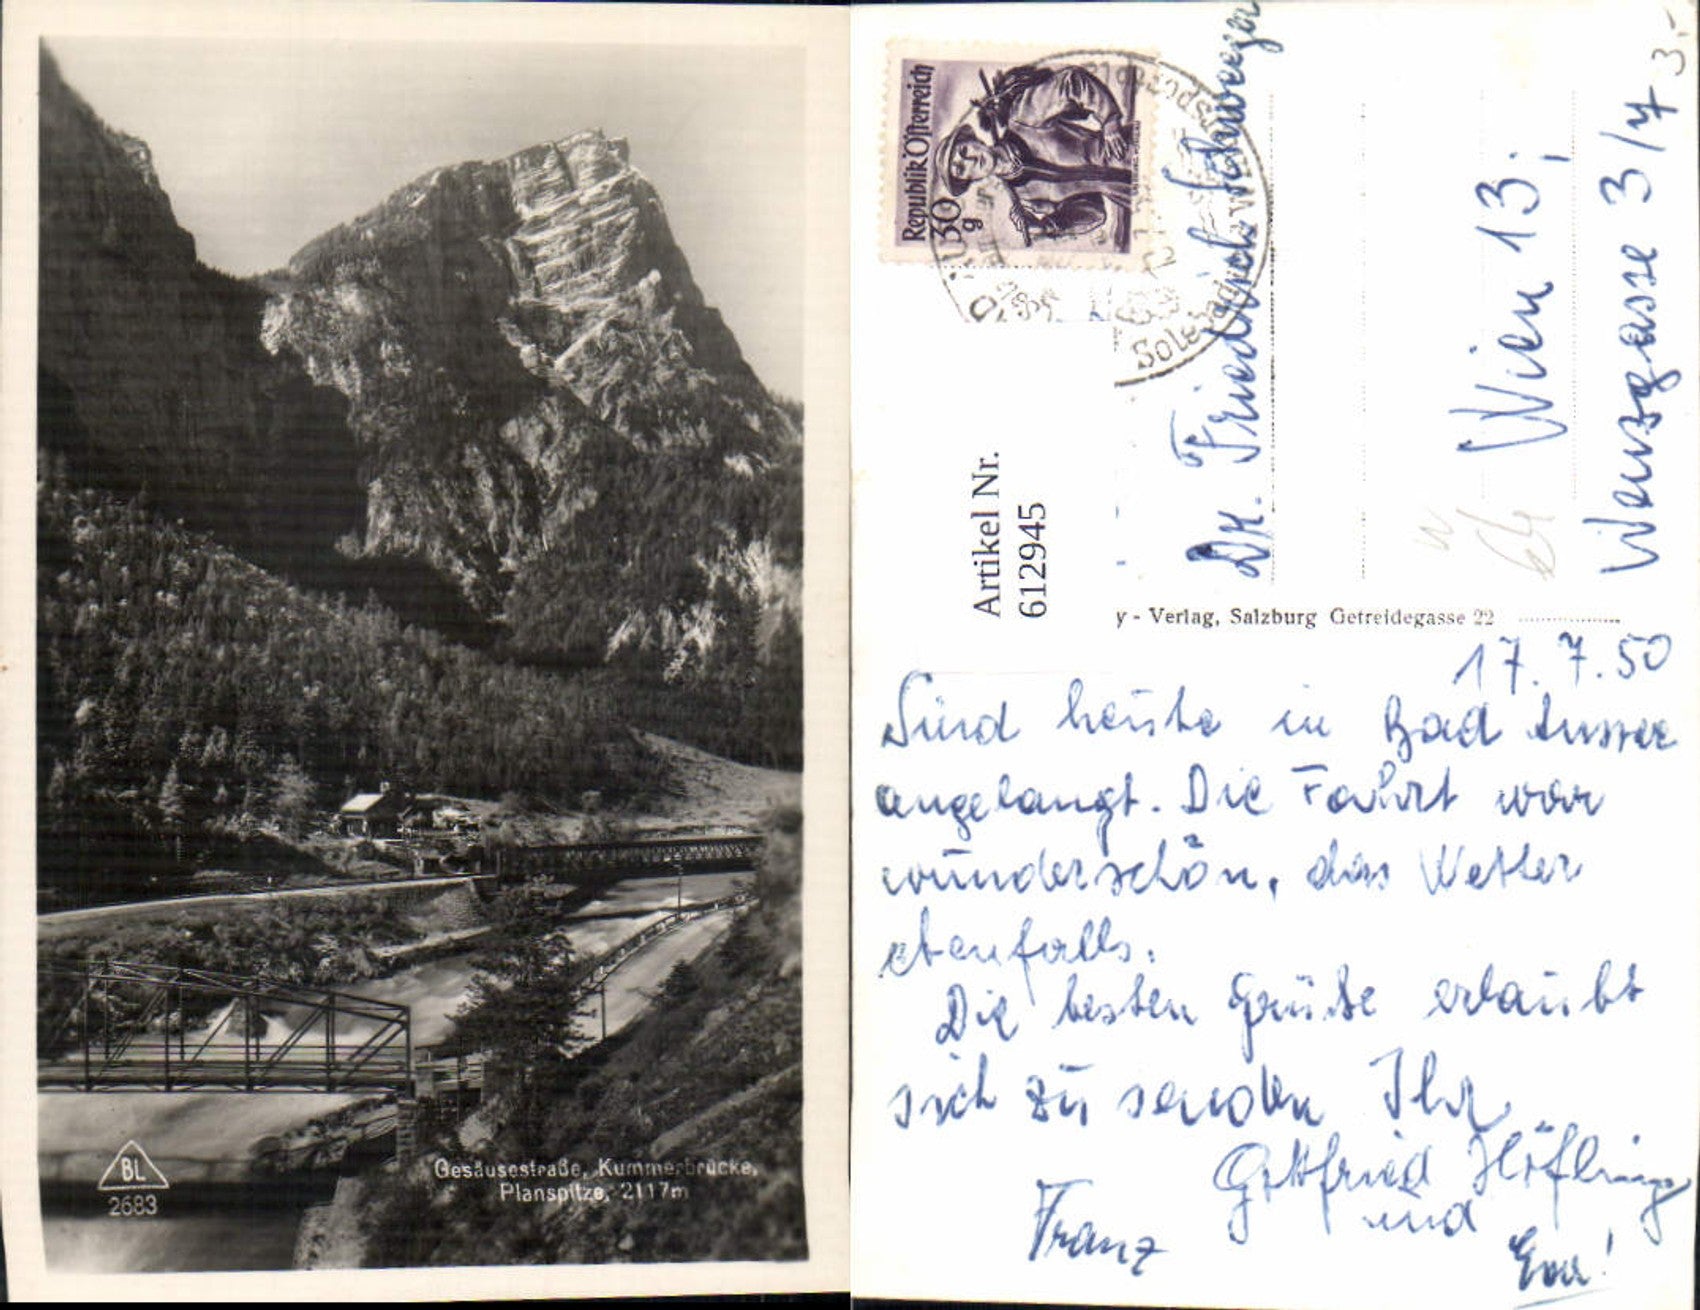 BL
2683
Gesäusestraße, Kummerbrücke,
Planspitze, 2117m
Republik Österreich
30
g
Solebad
Artikel Nr.
612945
Dr. Friedrich Schweeger
Wien 13;
Wenzgasse 3/7
3.-
y - Verlag, Salzburg Getreidegasse 22
17.7.50
Sind heute in Bad Aussee
angelangt. Die Fahrt war
wunderschön, das Wetter
ebenfalls.
Die besten Grüße erlaubt
sich zu senden Ihr
Gottfried Höfling
und
Franz
Eva!